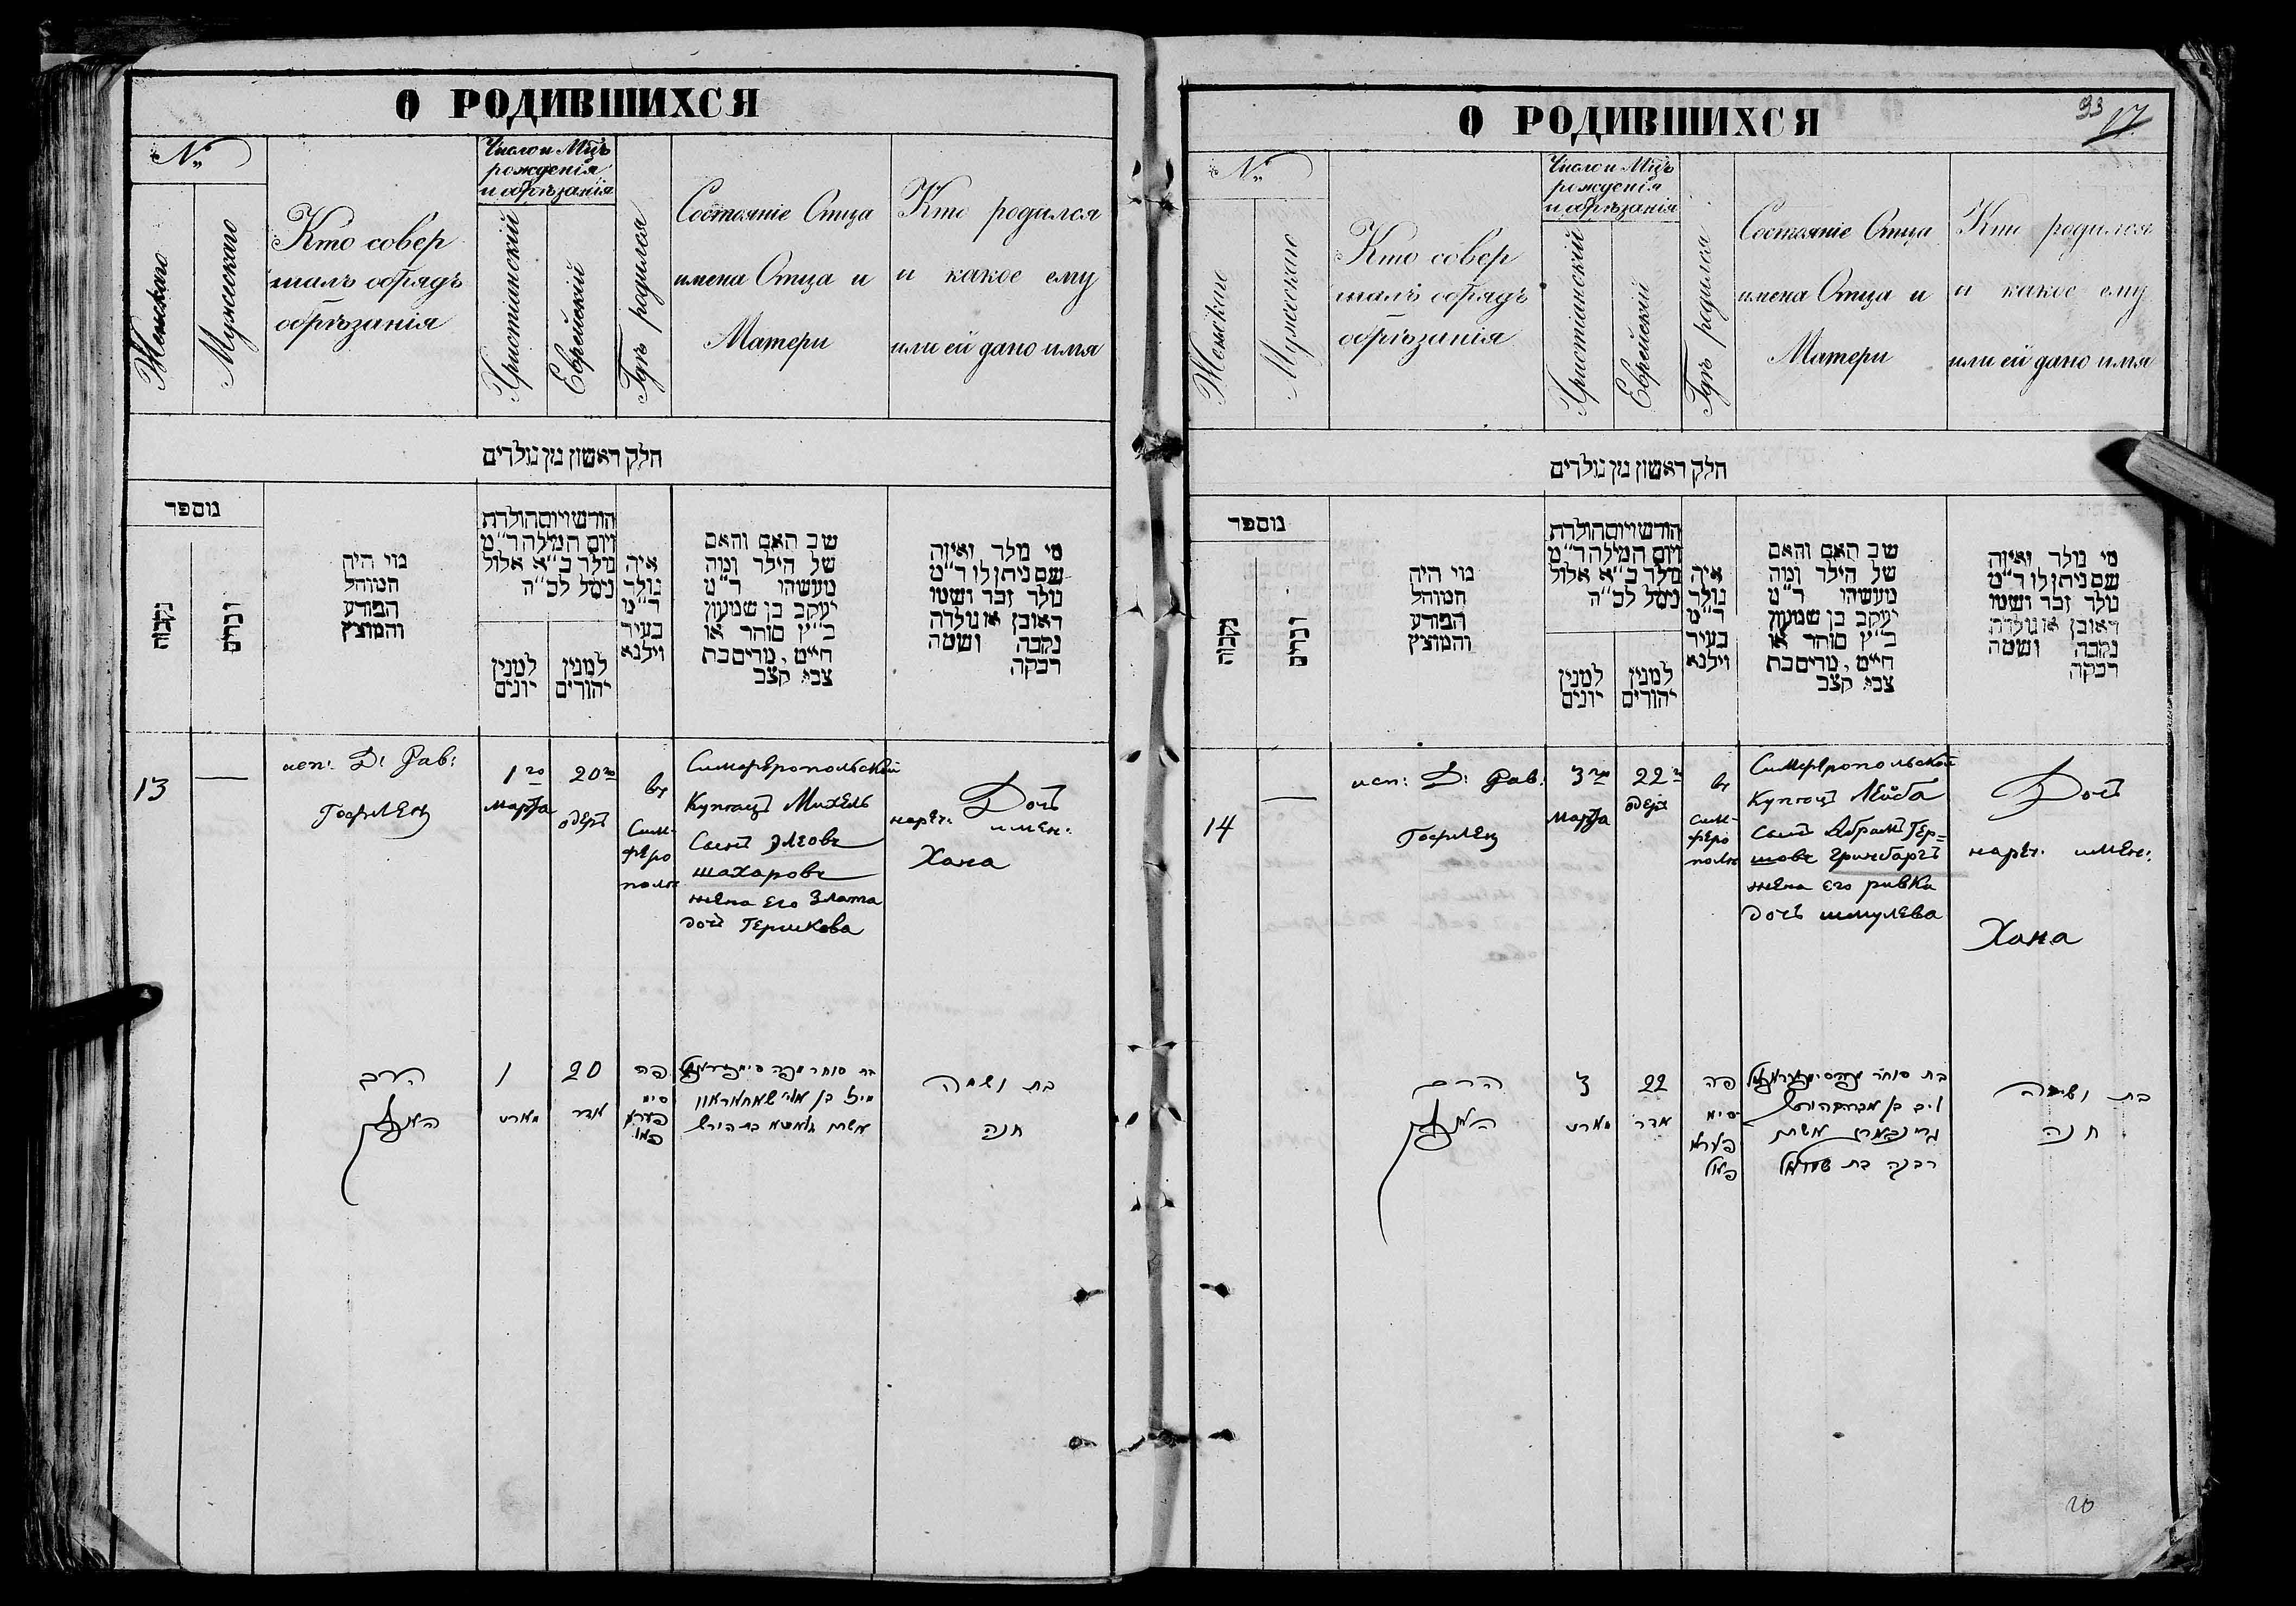 О РОДИВШИХСЯ
№
Женскаго
Мужескаго
Кто совер
шалъ обрядъ
обрѣзанія
Число и Мцъ
рожденія
и обрѣзанія
Христіанскій
Еврейскій
Гдѣ родился
Состояніе Отца
имена Отца и
Матери
Кто родился
и какое ему
или ей дано имя
חלק ראשון מן נולדים
מספר
נקבות
זכרים
מי היה
המוהל
הפורע
והמוצץ
חודש ויום הולדת
ויום המילה ד"מ
נולד כ"א אלול
נימל לכ"ה
למנין
יונים
למנין
יהודים
איה
נולד
ד"מ
בעיר
וילנא
שם האב והאם
של הילד ומה
מעשהו ד"מ
יעקב בן שמעון
כ"ץ סוחר או
חייט, מרים בת
צבי קצב
מי נולד ואיזה
שם ניתן לו ד"מ
נולד זכר ושמו
ראובן או נולדה
נקבה ושמה
רבקה
13
—
исп: Д: Рав:
Гофленъ
1го
Марта
20го
адеръ
въ
Сим-
феро
полѣ
Симферопольской
Купецъ Михель
Сынъ Элеовъ
шахаровъ
жена его Злата
дочъ Гершкова
Дочъ
нареч: имен:
Хана
הרב
1
מארט
20
אדר
פה
סימ
פערא
פאל
בת ושמה
חנה
О РОДИВШИХСЯ
33
17
№
Женскаго
Мужескаго
Кто совер
шалъ обрядъ
обрѣзанія
Число и Мцъ
рожденія
и обрѣзанія
Христіанскій
Еврейскій
Гдѣ родился
Состояніе Отца
имена Отца и
Матери
Кто родился
и какое ему
или ей дано имя
חלק ראשון מן נולדים
מספר
נקבות
זכרים
מי היה
המוהל
הפורע
והמוצץ
חודש ויום הולדת
ויום המילה ד"מ
נולד כ"א אלול
נימל לכ"ה
למנין
יונים
למנין
יהודים
איה
נולד
ד"מ
בעיר
וילנא
שם האב והאם
של הילד ומה
מעשהו ד"מ
יעקב בן שמעון
כ"ץ סוחר או
חייט, מרים בת
צבי קצב
מי נולד ואיזה
שם ניתן לו ד"מ
נולד זכר ושמו
ראובן או נולדה
נקבה ושמה
רבקה
14
—
исп: Д: Рав:
Гофленъ
3го
Марта
22го
адеръ
въ
Сим-
феро
полѣ
Симферопольской
Купецъ Лейба
Сынъ Абрамъ Гер=
шовъ Гринбаргъ
жена его ривка
дочъ шмулева
Дочъ
нареч: имен:
Хана
הרב
3
מארט
22
אדר
פה
סימ
פערא
פאל
רבקה בת שמואל
בת ושמה
חנה
20